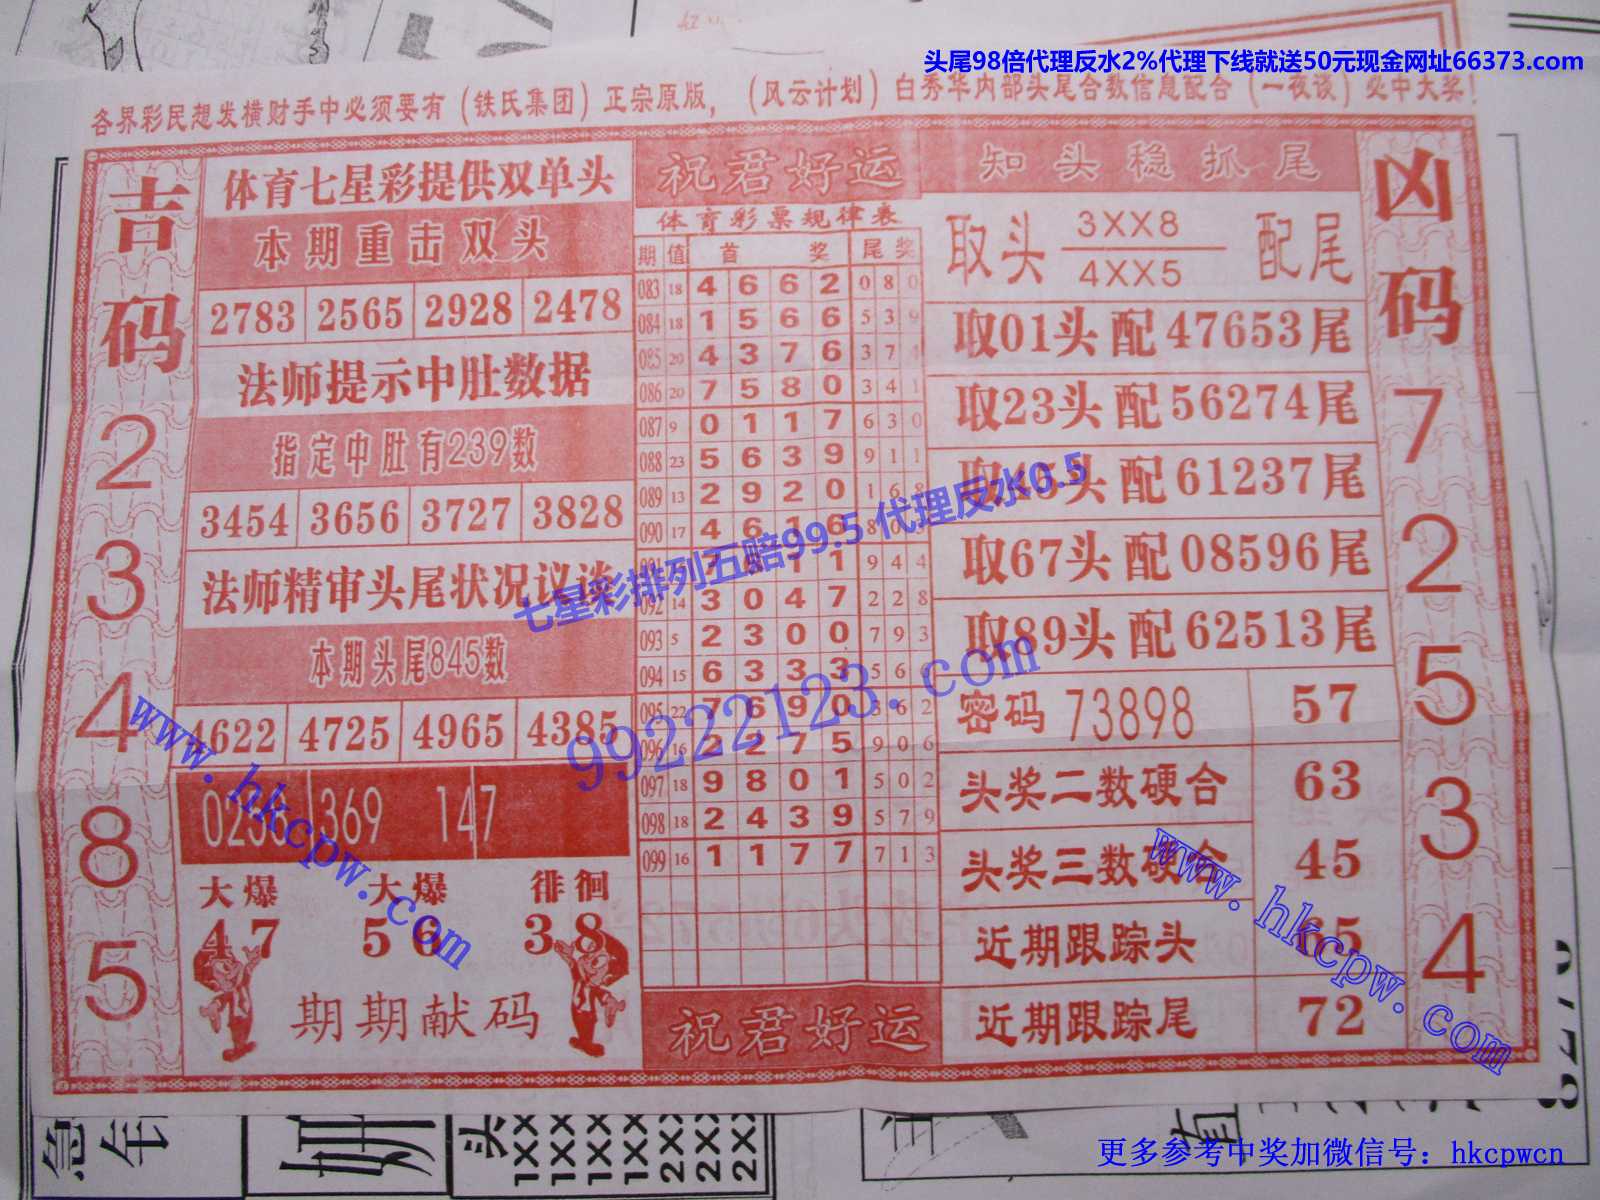 头尾98倍代理反水2%代理下线就送50元现金网址66373.com
各界彩民想发横财手中必须要有（铁氏集团）正宗原版，（风云计划）白秀华内部头尾合数信息配合（一夜谈）必中大奖！
吉码
2
3
4
8
5
体育七星彩提供双单头
本期重击双头
2783 2565 2928 2478
法师提示中肚数据
指定中肚有239数
3454 3656 3727 3828
法师精审头尾状况议谈
本期头尾845数
4622 4725 4965 4385
369 147
大爆 大爆 徘徊
47 56 38
期期献码
祝君好运
体育彩票规律表
期 值 首 奖 尾奖
083 18 4 6 6 2 0 8 0
084 18 1 5 6 6 5 3 9
085 20 4 3 7 6 3 7 4
086 20 7 5 8 0 3 4 1
087 9 0 1 1 7 6 3 0
088 23 5 6 3 9 9 1 1
089 13 2 9 2 0 1 6 8
090 17 4 6 1 6 8
1 1 9 4 4
092 14 3 0 4 7 2 2 8
093 5 2 3 0 0 7 9 3
094 15 6 3 3 3 5 6
095 22 7 6 9 0 3 6 2
096 16 2 2 7 5 9 0 6
097 18 9 8 0 1 5 0 2
098 18 2 4 3 9 5 7 9
099 16 1 1 7 7 7 1 3
祝君好运
知头稳抓尾
取头 3XX8 配尾
4XX5
取01头配47653尾
取23头配56274尾
取45头配61237尾
取67头配08596尾
取89头配62513尾
密码 73898 57
头奖二数硬合 63
头奖三数硬合 45
近期跟踪头 65
近期跟踪尾 72
凶码
7
2
5
3
4
七星彩排列五赔99.5 代理反水0.5
99222123.com
www.hkcpw.com
www.hkcpw.com
急
头
1XX
1XX
1XX
1XX
2XX
2XX
2XX
更多参考中奖加微信号：hkcpwcn